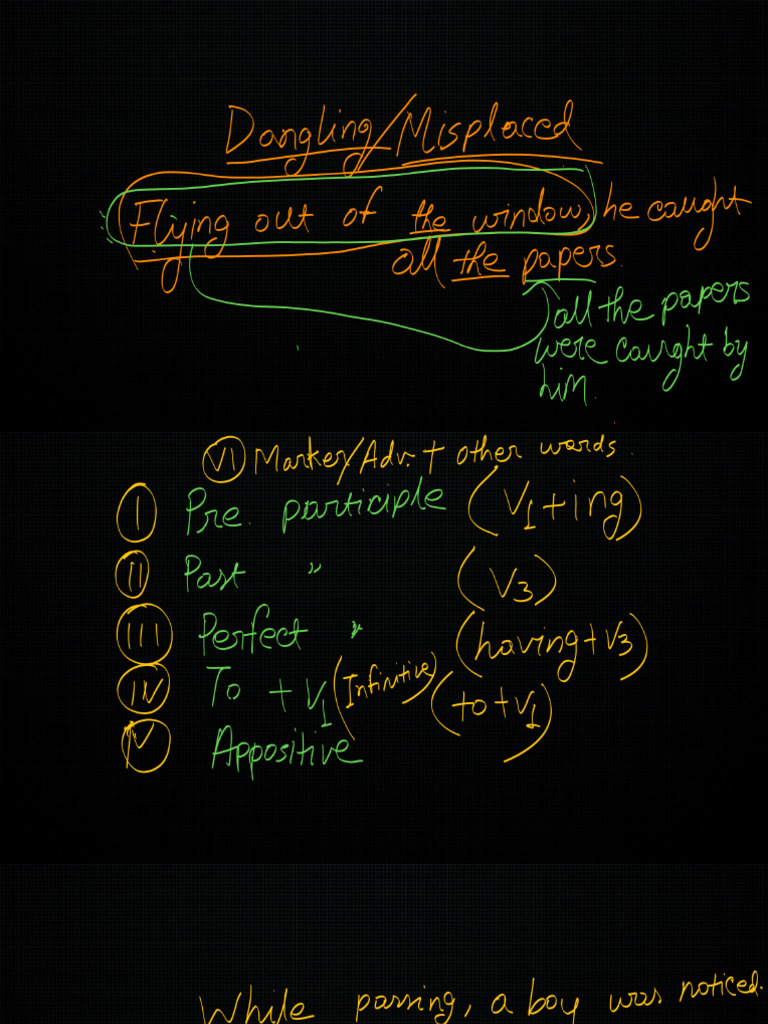 Dangling/Misplaced
Flying out of the window, he caught
all the papers.
all the papers
were caught by
him.
VI Marker/Adv. + other words.
I Pre. participle (V1+ing)
II Past " (V3)
III Perfect " (having+V3)
IV To + V1 (Infinitive) (to+V1)
V Appositive
While passing, a boy was noticed.